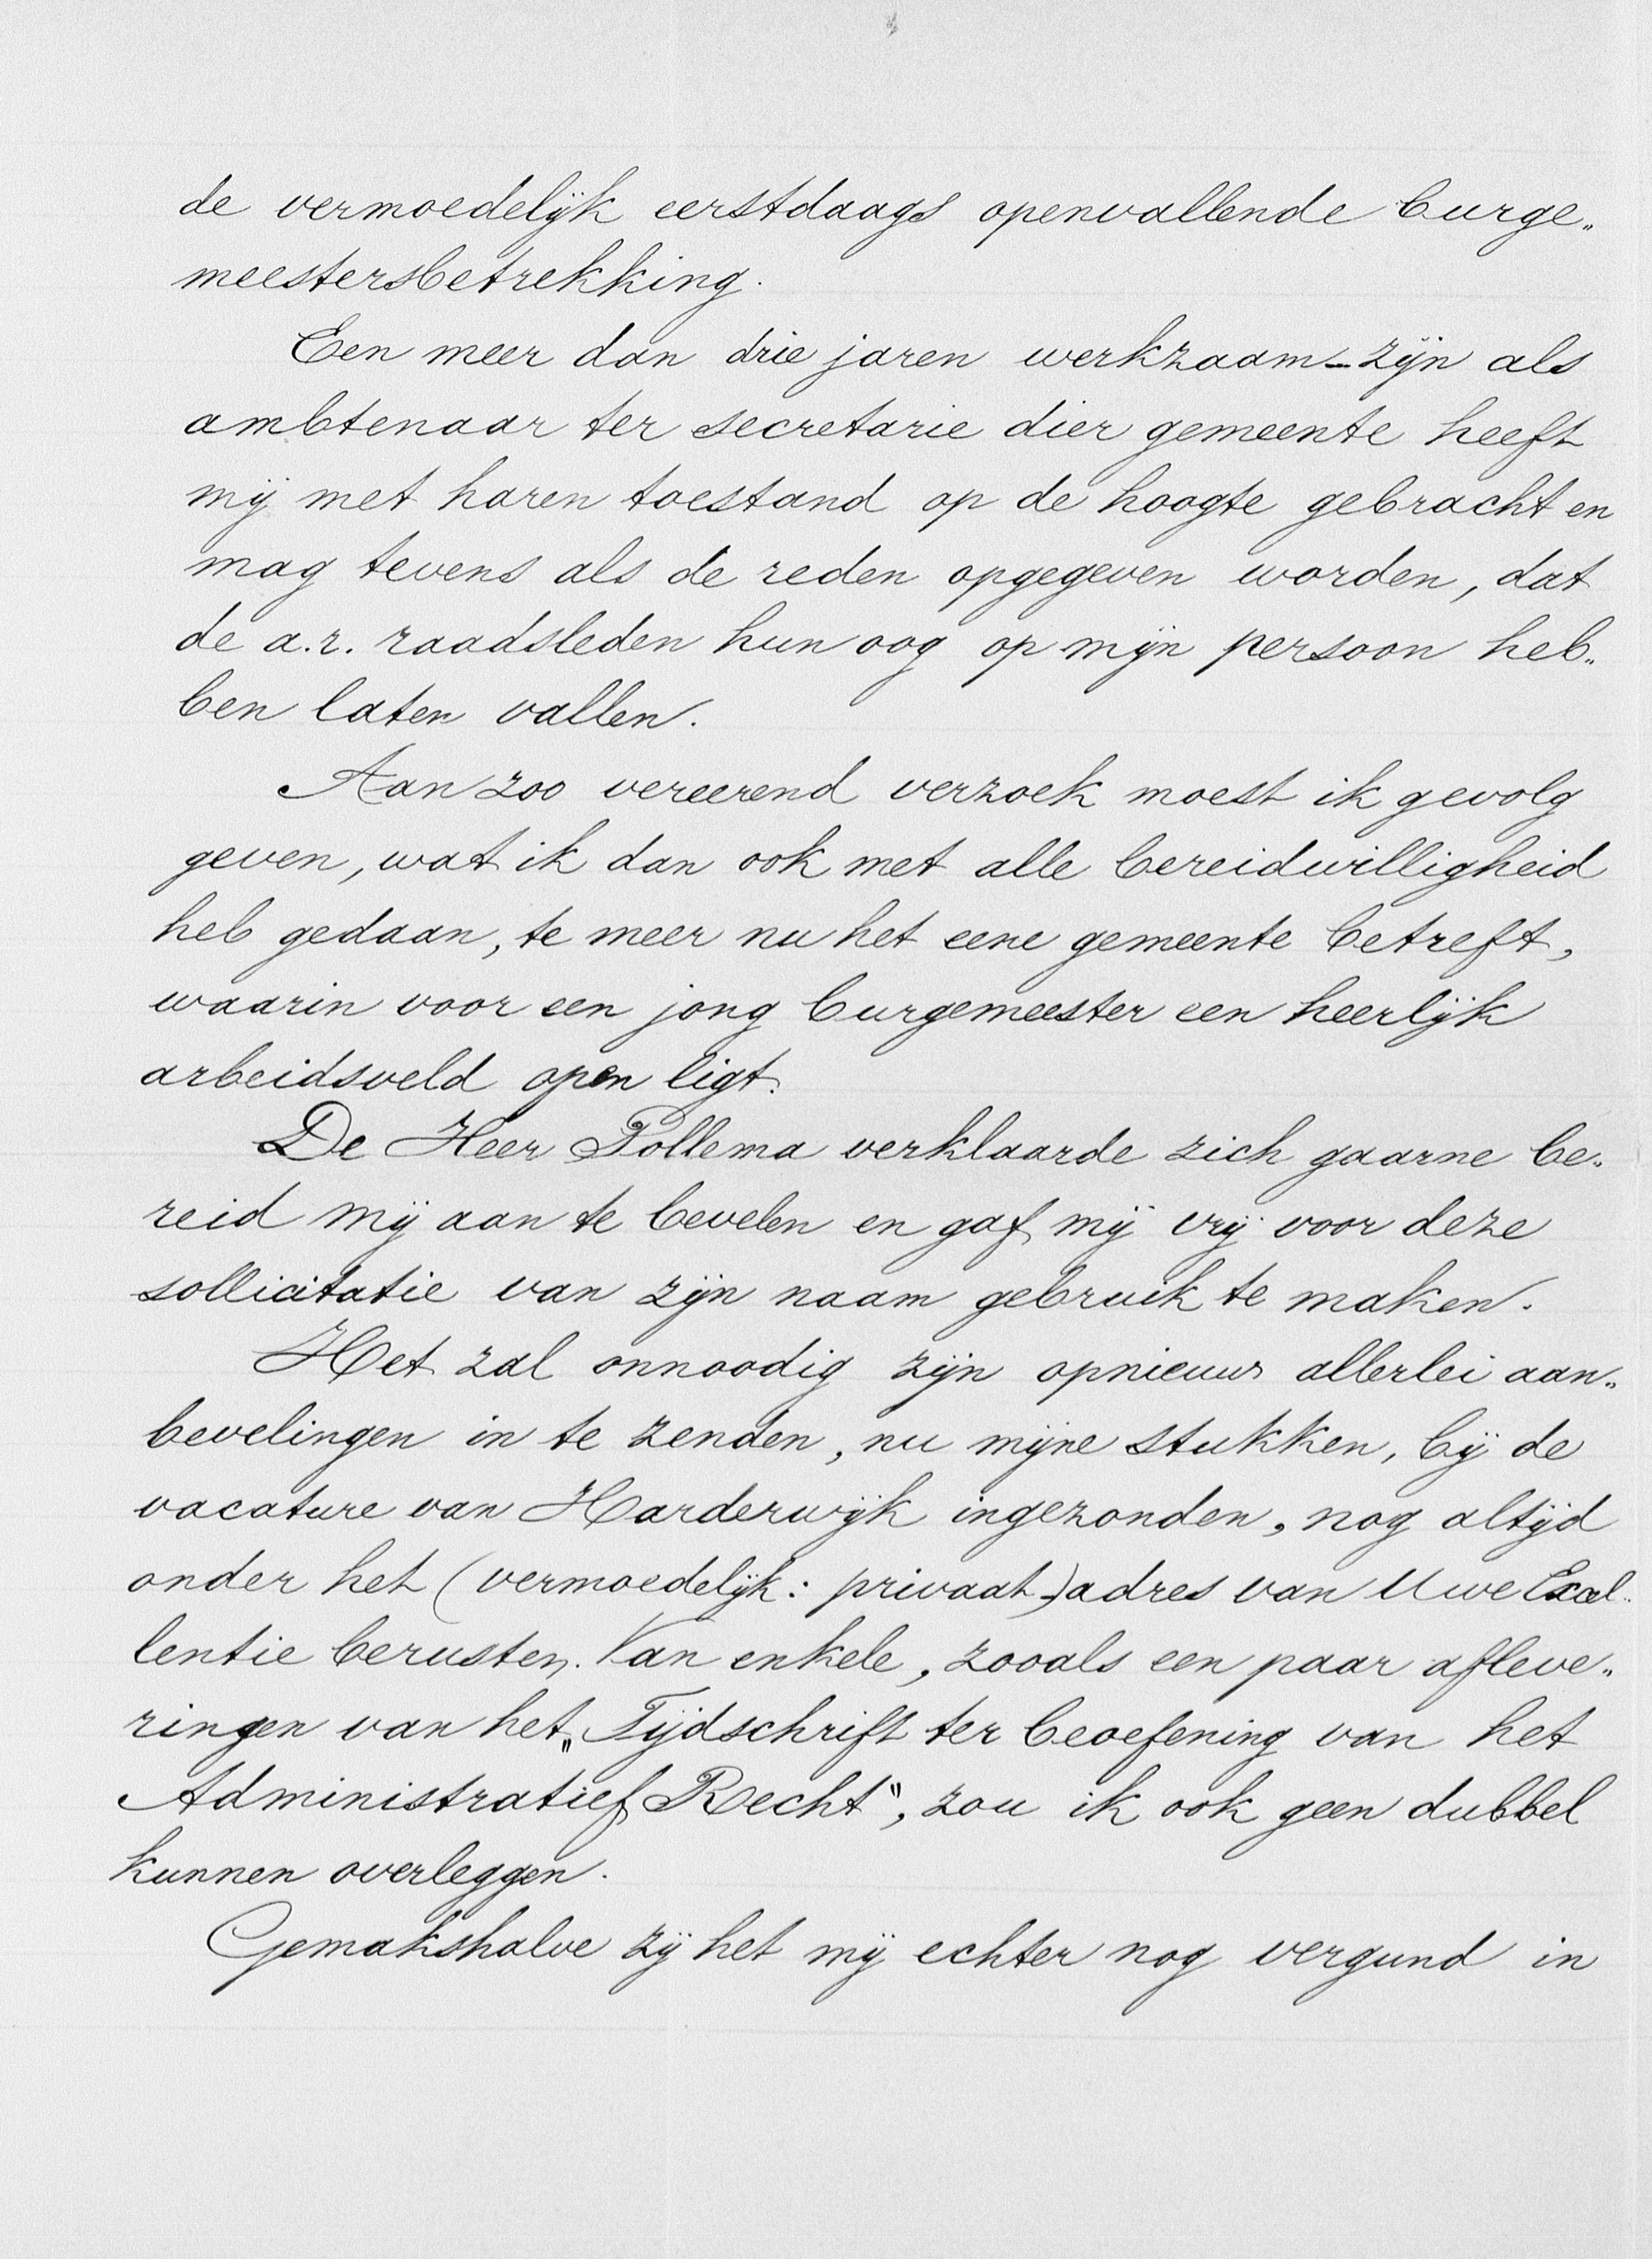 de vermoedelijk eerstdaags openvallende burge„
meestersbetrekking.
Een meer dan drie jaren werkzaam-zijn als
ambtenaar ter secretarie dier gemeente heeft
mij met haren toestand op de hoogte gebracht en
mag tevens als de reden opgegeven worden, dat
de a.r. raadsleden hun oog op mijn persoon heb„
ben laten vallen.
Aan zoo vereerend verzoek moest ik gevolg
geven, wat ik dan ook met alle bereidwilligheid
heb gedaan, te meer nu het eene gemeente betreft,
waarin voor een jong burgemeester een heerlijk
arbeidsveld open ligt.
De Heer Pollema verklaarde zich gaarne be„
reid mij aan te bevelen en gaf mij vrij voor deze
sollicitatie van zijn naam gebruik te maken.
Het zal onnoodig zijn opnieuw allerlei aan„
bevelingen in te zenden, nu mijne stukken, bij de
vacature van Harderwijk ingezonden, nog altijd
onder het (vermoedelijk: privaat-)adres van Uwe Excel„
lentie berusten. Van enkele, zooals een paar afleve„
ringen van het „Tijdschrift ter beoefening van het
Administratief Recht“, zou ik ook geen dubbel
kunnen overleggen.
Gemakshalve zij het mij echter nog vergund in